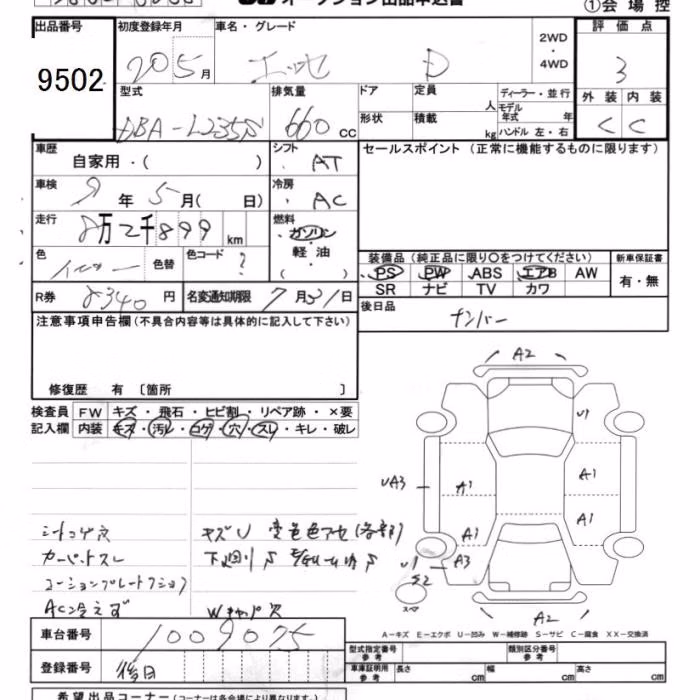 オークション出品申込書
①会場控
出品番号 初度登録年月 車名・グレード 2WD ・ 4WD 評価点
9502 20 5月 エッセ D 3
型式 排気量 ドア 定員 人 ディーラー・並行 外装 内装
DBA-L235S 660 cc 形状 積載 kg モデル年式 年 ハンドル 左・右 C C
車歴 自家用・( ) シフト AT セールスポイント(正常に機能するものに限ります)
車検 9年 5月( 日) 冷房 AC
走行 8万2千899 km 燃料 ガソリン・軽油・( )
色 イエロー 色替 色コード ? 装備品(純正品に限り〇をつけてください) 新車保証書
PS PW ABS エアB AW 有・無
SR ナビ TV カワ
R券 8340 円 名変通知期限 7月31日 後日品 ナンバー
注意事項申告欄(不具合内容等は具体的に記入して下さい)
修復歴 有 〔箇所 〕
検査員 FW キズ・飛石・ヒビ割・リペア跡・×要
記入欄 内装 キズ・汚レ・コゲ・穴・スレ・キレ・破レ
A2
U1
UA3 A1 A1
A1
A1
U1 A3
S2
スペア
A2
シートコゲ穴 キズU 変色色アセ(各部)
カーペットスレ 下廻りS
コーションプレート
AC冷えず
A-キズ E-エクボ U-凹み W-補修跡 S-サビ C-腐食 XX-交換済
車台番号 1009075
登録番号 後日
型式指定番号 参考 類別区分番号 参考
車庫証明用 参考 長さ cm 幅 cm 高さ cm
希望出品コーナー(コーナーは各会場により異なります)